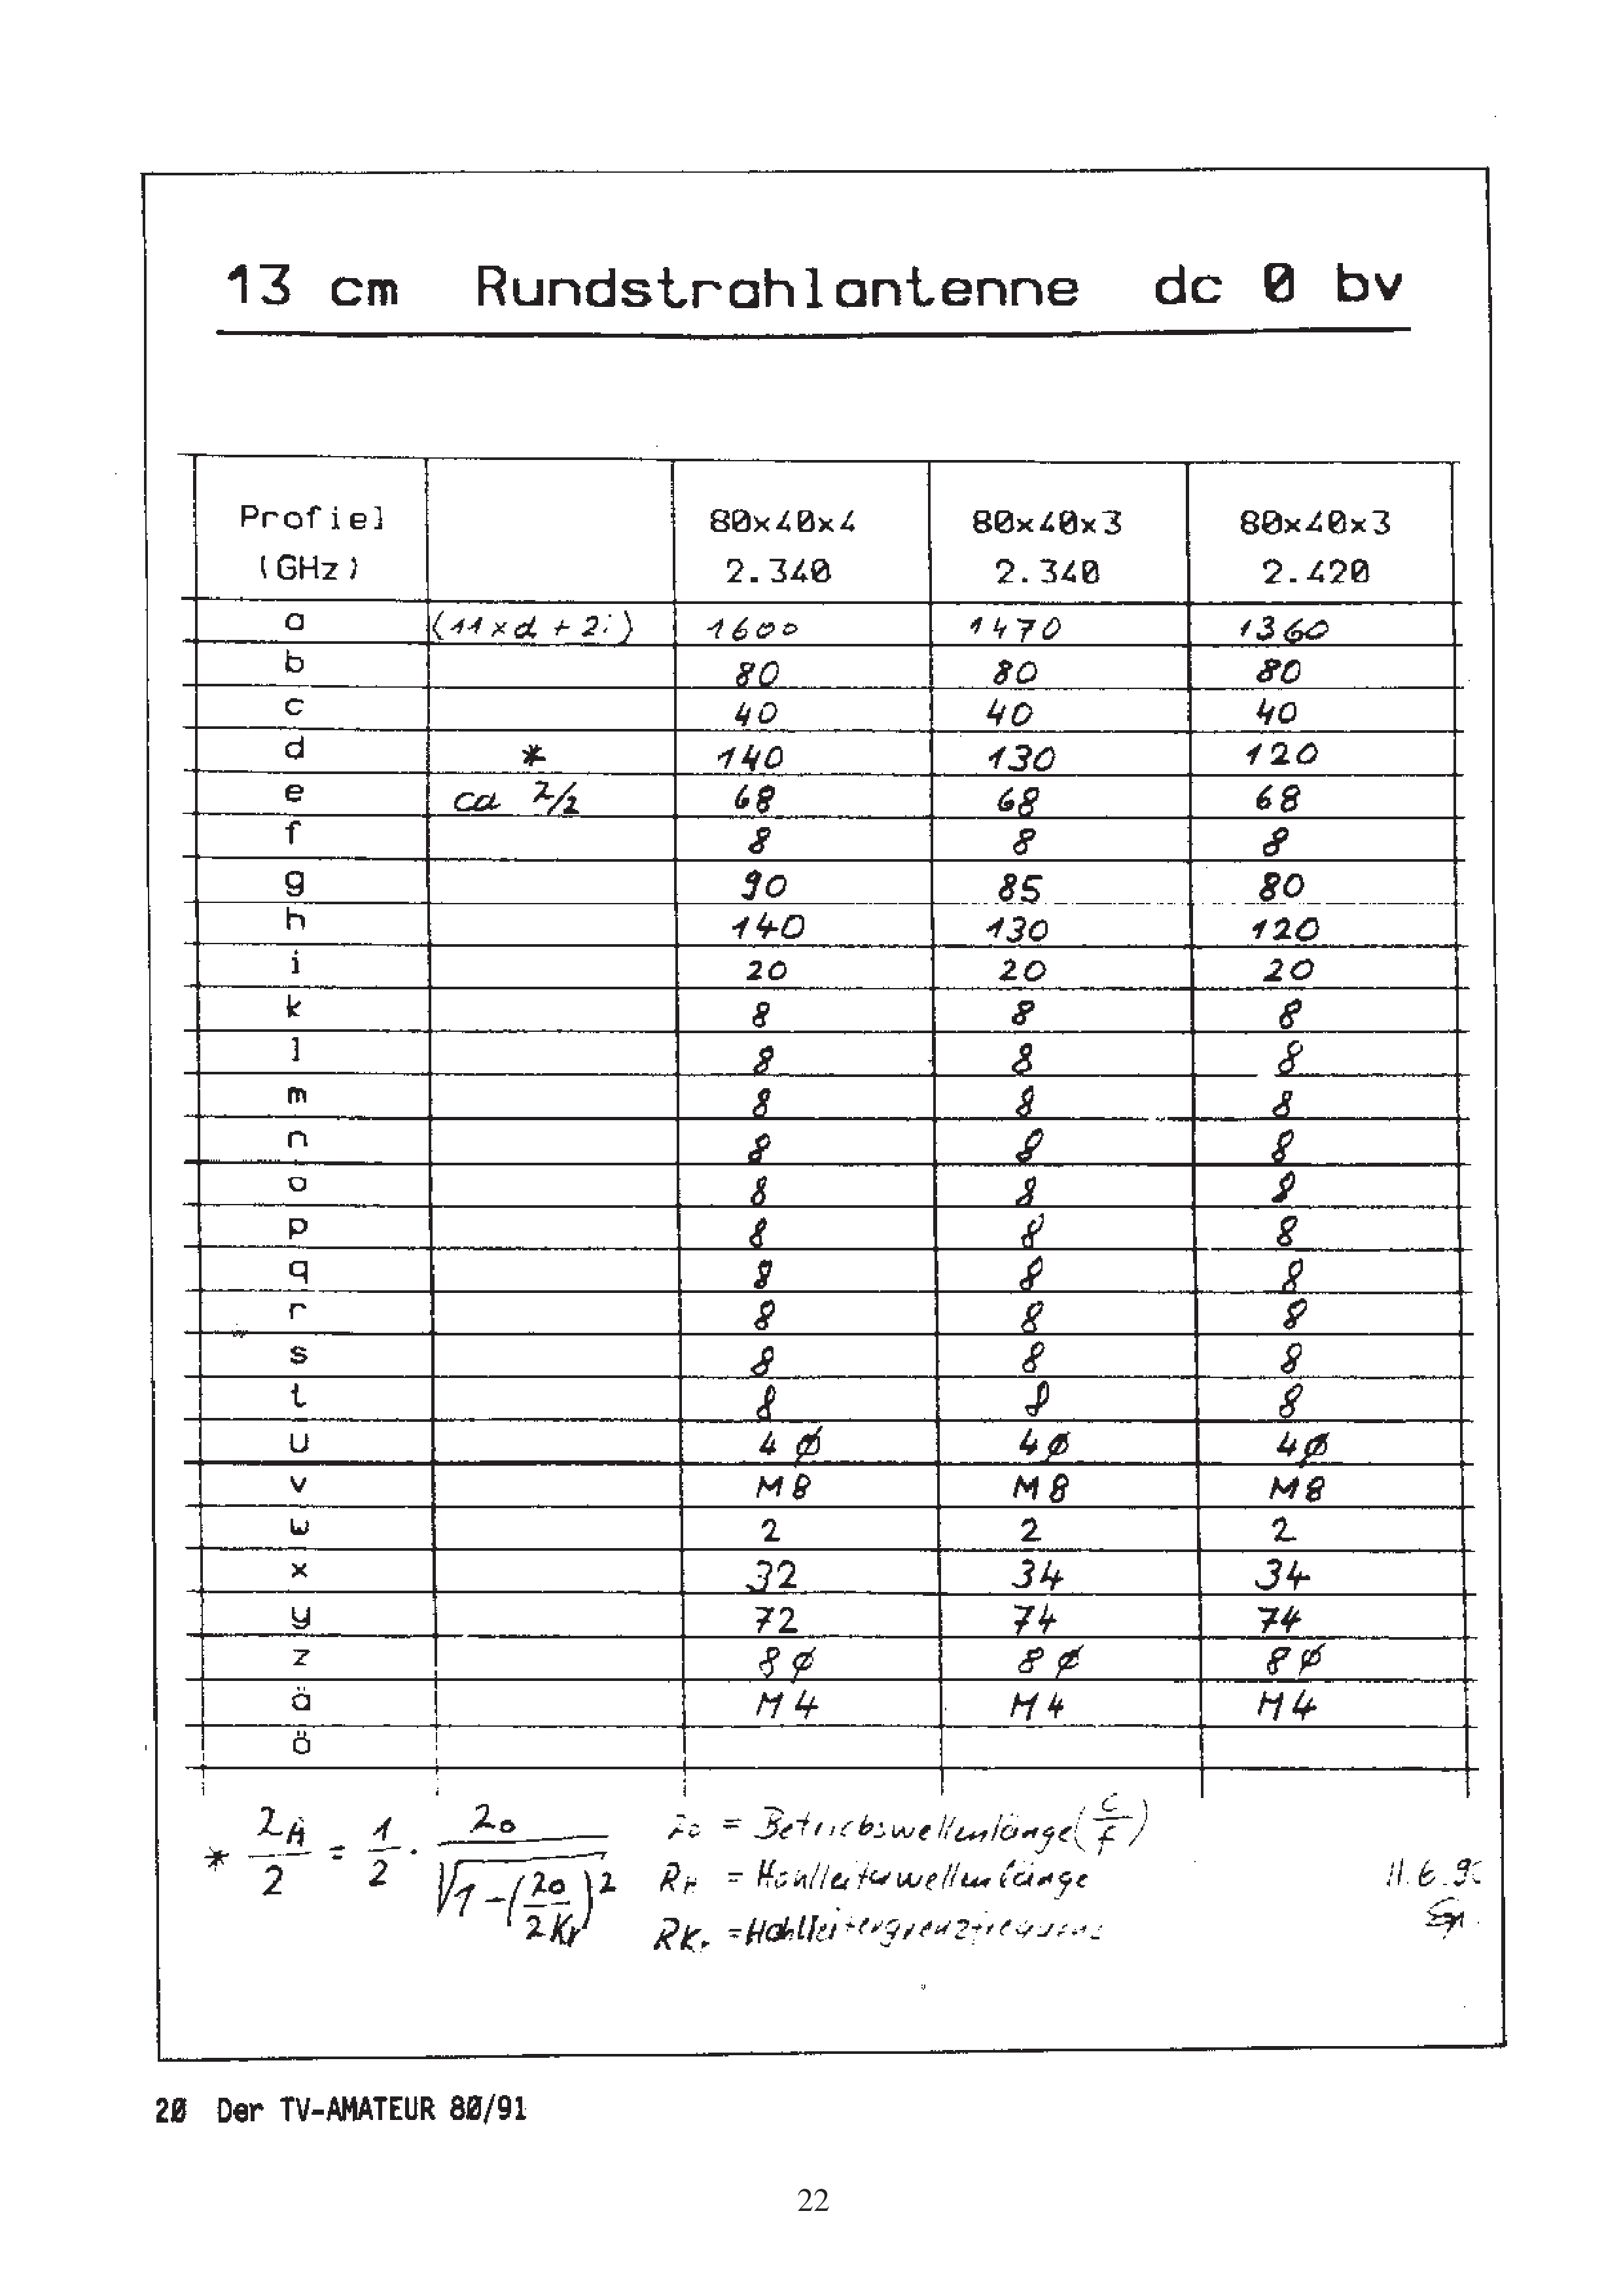 13 cm Rundstrahlantenne dc 0 bv
Profiel 80x40x4 80x40x3 80x40x3
(GHz) 2.340 2.340 2.420
a (11xd + 2i) 1600 1470 1360
b 80 80 80
c 40 40 40
d * 140 130 120
e ca λ/2 68 68 68
f 8 8 8
g 90 85 80
h 140 130 120
i 20 20 20
k 8 8 8
l 8 8 8
m 8 8 8
n 8 8 8
o 8 8 8
p 8 8 8
q 8 8 8
r 8 8 8
s 8 8 8
t 8 8 8
u 4 Ø 4 Ø 4 Ø
v M8 M8 M8
w 2 2 2
x 32 34 34
y 72 74 74
z 8 Ø 8 Ø 8 Ø
ä M4 M4 M4
ö
* λH/2 = 1/2 · λo/√1-(λo/λKr)²
λo = Betriebswellenlänge (c/f)
λH = Hohlleiterwellenlänge
λKr = Hohlleitergrenzfrequenz
11.6.90
20 Der TV-AMATEUR 80/91
22